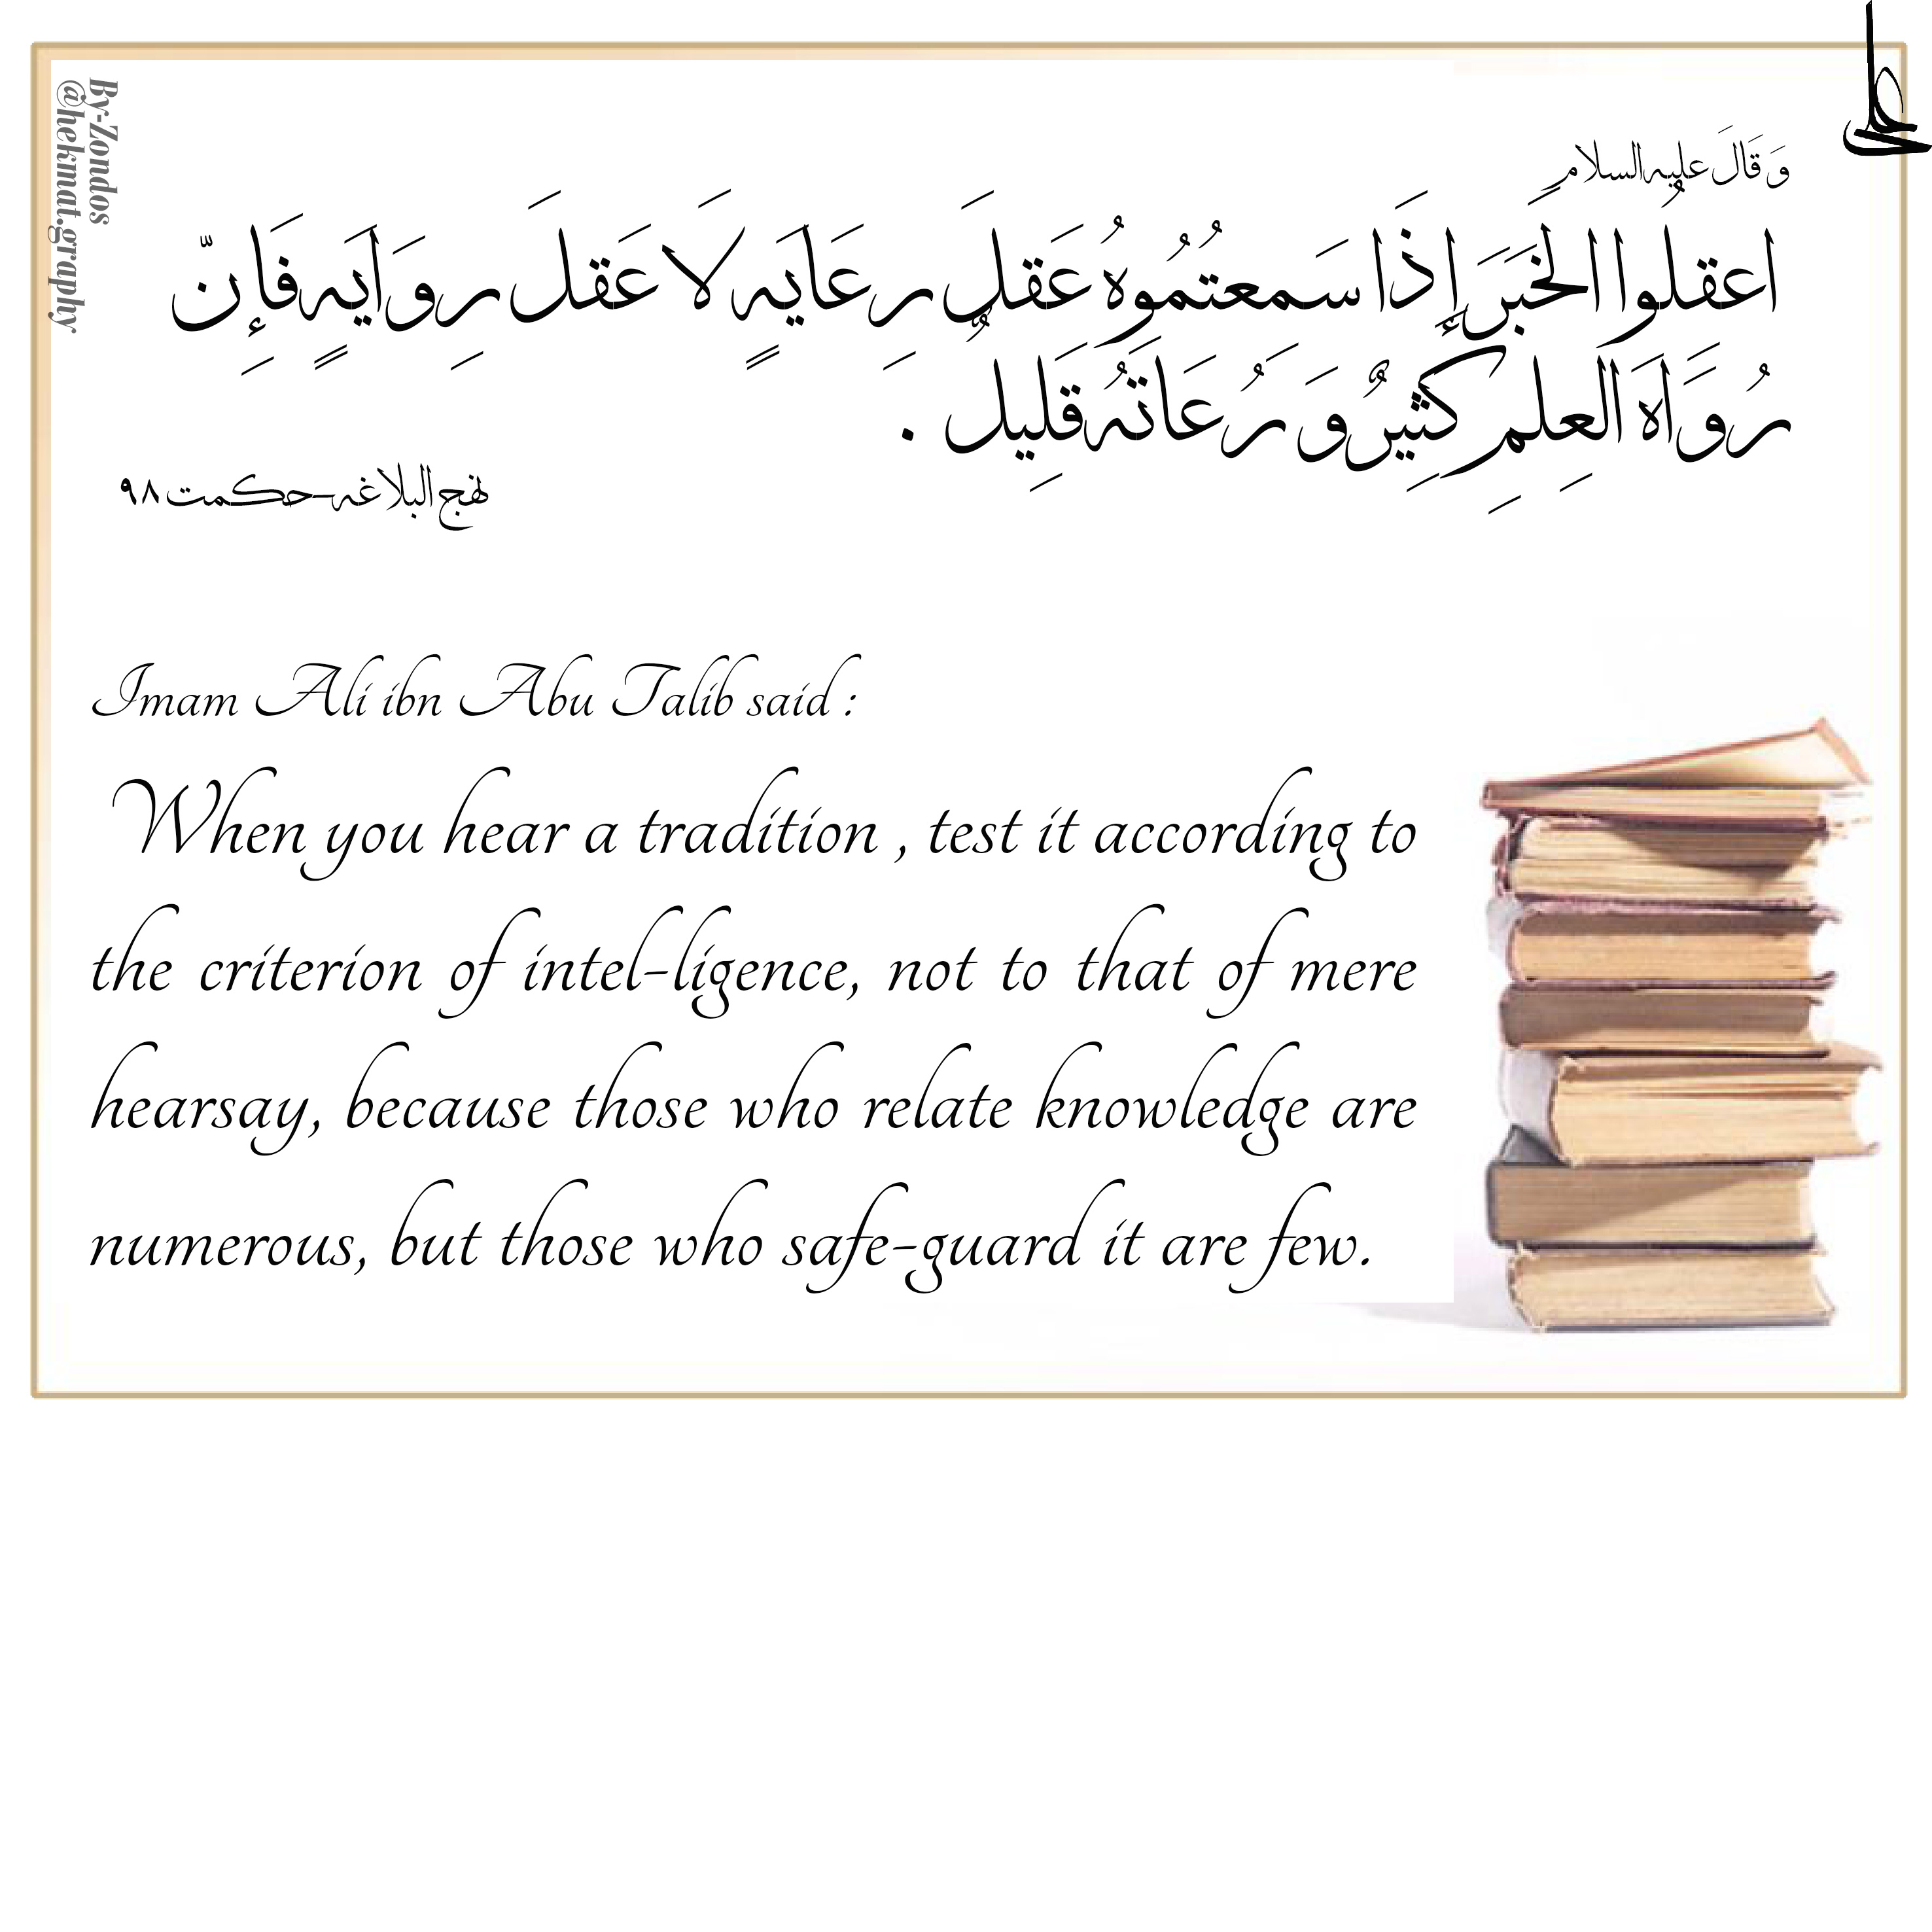 علی
By-Zondos
@hekmat.graphy
وَ قَالَ علیه‌السلام
اعقلُوا الخَبَرَ إِذَا سَمعتُمُوهُ عَقلَ رِعَایَهٍ لَا عَقلَ رِوَایَهٍ فَإِنّ
رُوَاهَ العِلمِ کَثِیرٌ وَ رُعَاتَهُ قَلِیلٌ .
نهج البلاغه-حکمت ۹۸
Imam Ali ibn Abu Talib said :
When you hear a tradition , test it according to
the criterion of intel-ligence, not to that of mere
hearsay, because those who relate knowledge are
numerous, but those who safe-guard it are few.